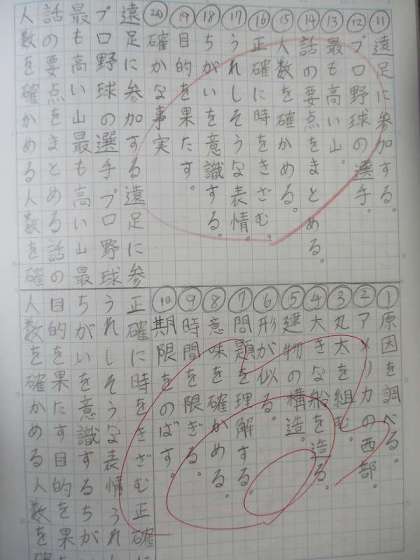 ⑪遠足に参加する。
⑫プロ野球の選手。
⑬最も高い山。
⑭話の要点をまとめる。
⑮人数を確かめる。
⑯正確に時をきざむ。
⑰うれしそうな表情。
⑱ちがいを意識する。
⑲目的を果たす。
⑳確かな事実
遠足に参加する遠足に参
プロ野球の選手プロ野球
最も高い山最も高い山最
話の要点をまとめる話の
人数を確かめる人数を確
①原因を調べる。
②アメリカの西部。
③丸太を組む。
④大きな船を造る。
⑤建物の構造。
⑥形が似る。
⑦問題を理解する。
⑧意味を確かめる。
⑨時間を限ぎる。
⑩期限をのばす。
正確に時をきざむ正確
うれしそうな表情うれ
ちがいを意識するちが
目的を果たす目的を果
人数を確かめる人数を